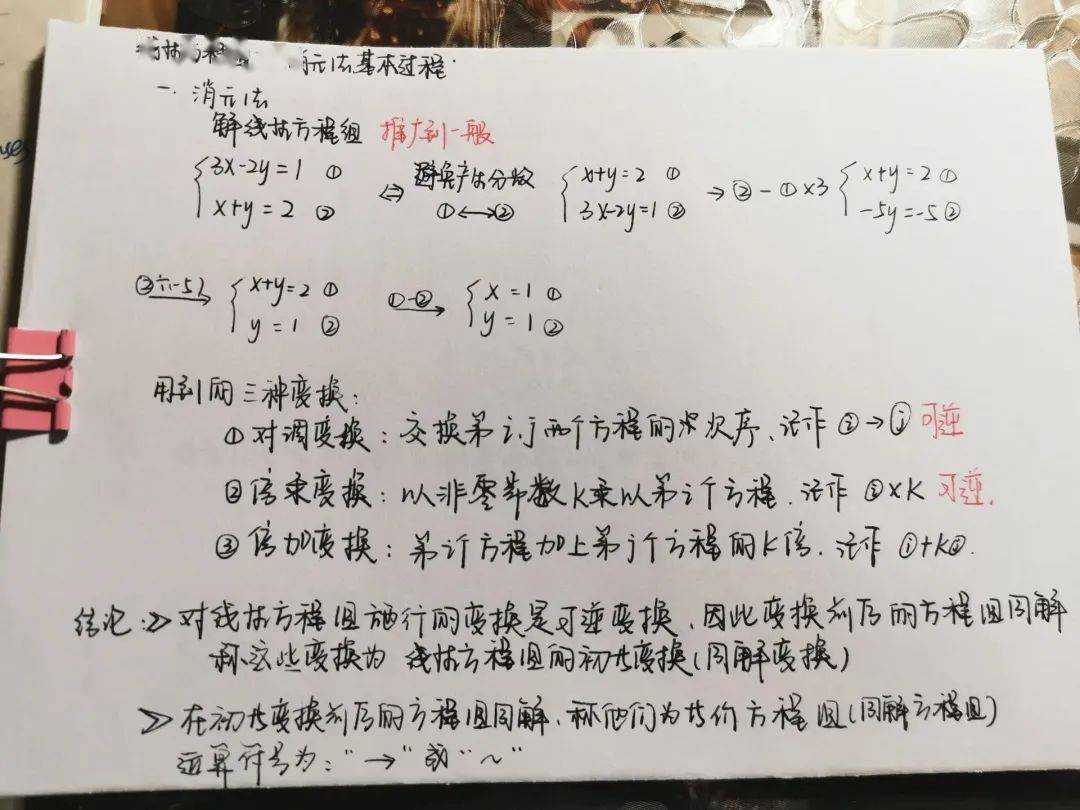 消元法基本过程.
一. 消元法
解线性方程组 推广到一般
{3x-2y=1 ① ⇔ 避免产生分数 {x+y=2 ① → ②-①×3 {x+y=2 ①
x+y=2 ② ①↔② 3x-2y=1 ② -5y=-5 ②
②÷(-5) {x+y=2 ① ①-② {x=1 ①
y=1 ② y=1 ②
用到的三种变换:
①对调变换: 交换第i,j两个方程的次序、记作 ⓘ→ⓙ 可逆
②倍乘变换: 以非零常数K乘以第i个方程. 记作 ⓘ×K 可逆.
③倍加变换: 第i个方程加上第j个方程的K倍. 记作 ⓘ+Kⓙ.
结论:> 对线性方程组施行的变换是可逆变换、因此变换前后的方程组同解
称这些变换为 线性方程组的初等变换(同解变换)
> 在初等变换前后的方程组同解、称他们为等价方程组(同解方程组)
运算符号为: "→" 或 "~"